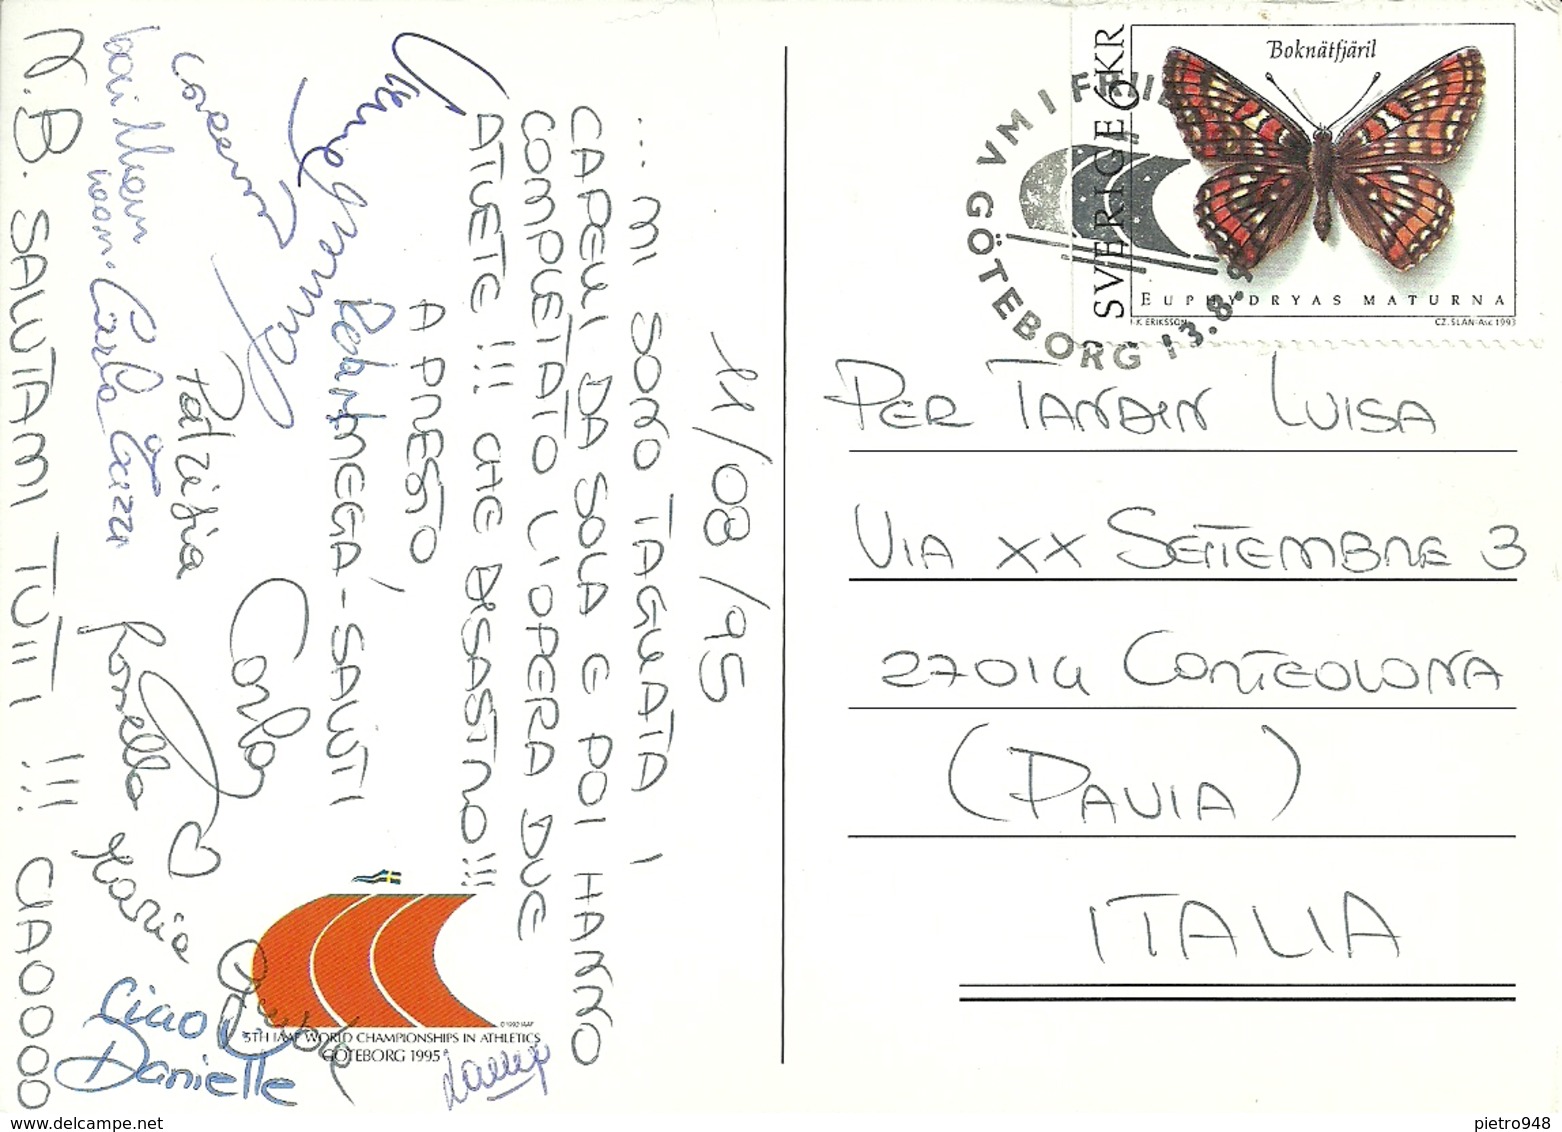 11/08/95
... MI SONO TAGLIATA I
CAPELLI DA SOLA E POI HANNO
COMPLETATO L'OPERA DUE
ATLETE !!! CHE DISASTRO!!!
A PRESTO
MEGA-SALUTI
Patrizia
Carla
Ornella
Maria
Ciao
Danielle
N.B. SALUTAMI TUTTI !!! CIAOOOOO
5TH IAAF WORLD CHAMPIONSHIPS IN ATHLETICS
GÖTEBORG 1995
© 1992 IAAF
Boknätfjäril
SVERIGE 6 KR
EUPHYDRYAS MATURNA
K. ERIKSSON
CZ. SLANIA sc 1993
VM I FRIID
GÖTEBORG 13.8.
PER TANDIN LUISA
VIA XX SETTEMBRE 3
27014 CORTEOLONA
(PAVIA)
ITALIA
pietro948